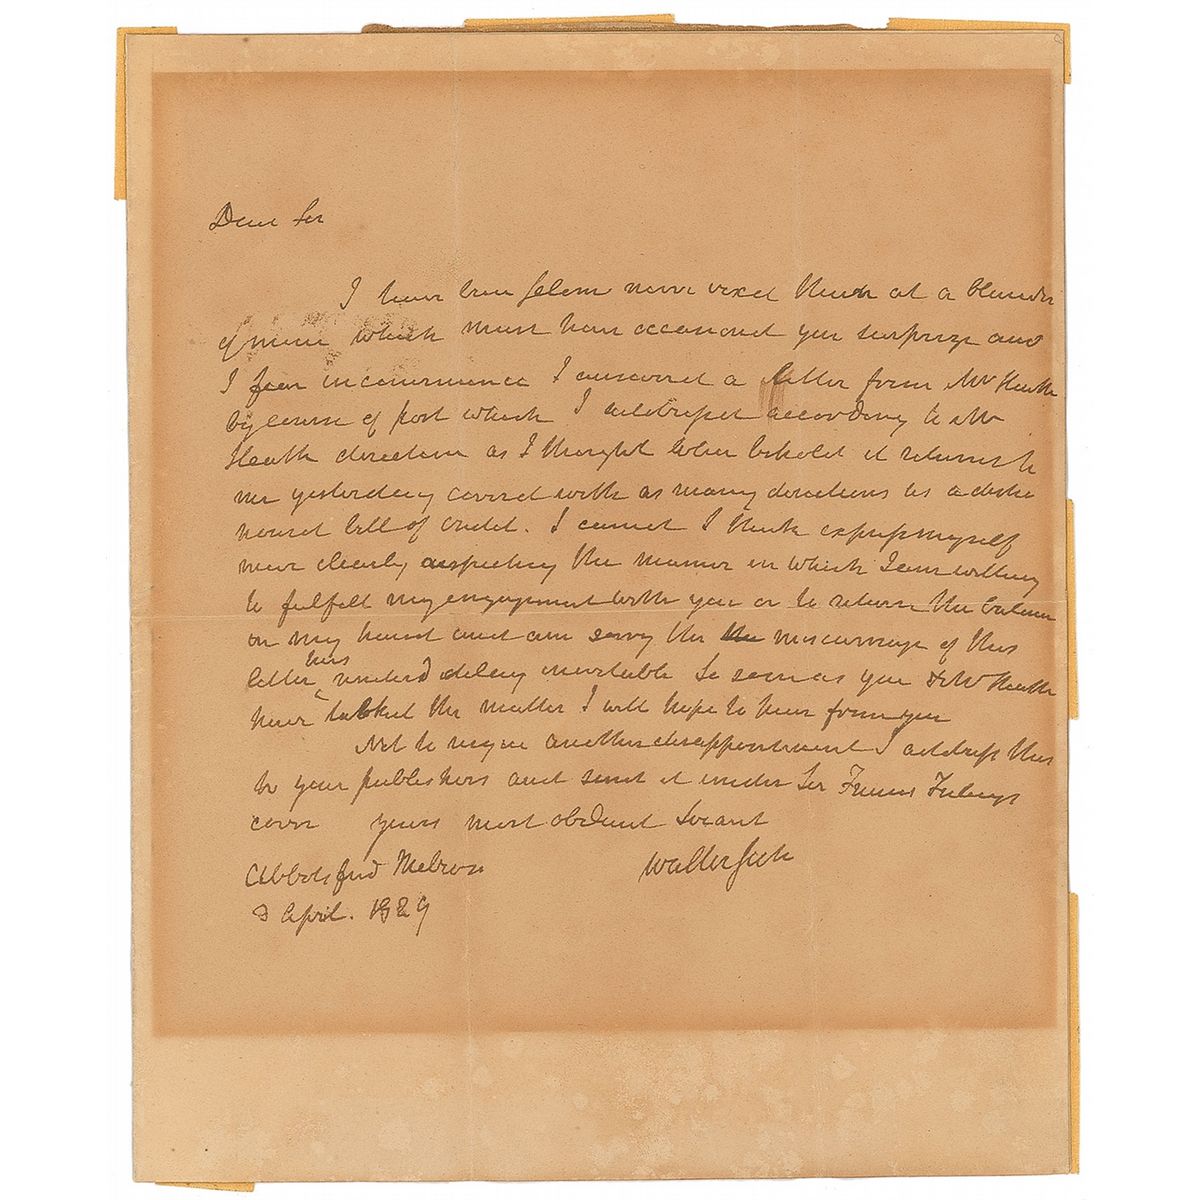 Dear Sir
I have been seldom more vexd than at a blunder
of mine which must have occasiond you surprize and
I fear inconvenience I answerd a letter from Mr Heath
by course of post which I addressd according to Mr
Heath direction as I thought when behold it returns to
me yesterday coverd with as many directions as a disho
nourd bill of credit. I cannot I think express myself
more clearly respecting the manner in which I am willing
to fulfill my engagement with you or to return the balance
on my hand and am sorry the the miscarriage of this
letter has renderd delay inevitable So soon as you & Mr Heath
have talkd the matter I will hope to hear from you
Not to incur another disappointment I address this
to your publishers and send it under Sir Francis Freelings
cover yours most obedient Servant
Walter Scott
Abbotsford Melrose
April. 1829